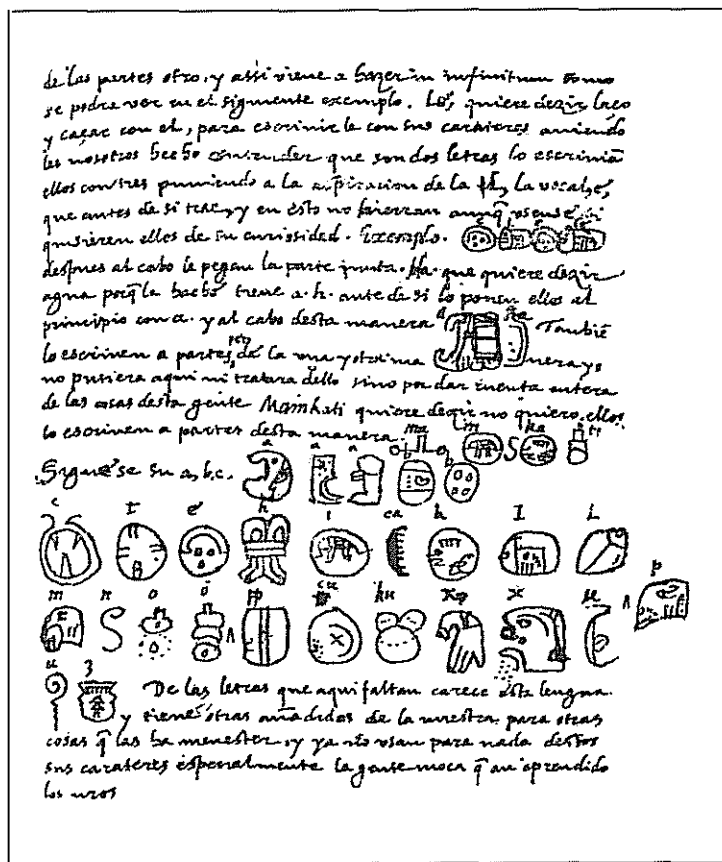 de las partes otro, y assi viene a hazer in infinitum como
se podra ver en el siguiente exemplo. Lé, quiere dezir laço
y caçar con el, para escriuirle con sus carateres auiendo
les nosotros hecho entender que son dos letras lo escriuiā
ellos con tres puniendo a la aspiracion de la la vocal, é,
que antes de si trae, y en esto no hierran aunq̄ usense, si
quisieren ellos de su curiosidad. Exemplo.
despues al cabo le pegan la parte junta. Ha. que quiere dezir
agua porq̄ la haché tiene a. h. ante de si lo ponen ellos al
principio con a. y al cabo desta manera Tambiē
lo escriuen a partes pero de la una y otra ma nera y
no pusiera aqui ni tratara dello sino por dar cuenta entera
de las cosas desta gente Mainkati quiere dezir no quiero, ellos
lo escriuen a partes desta manera. ma i n ka ti
Siguese su a, b, c. a a a b b
c t é h i ca k l L
m n o o pp cu ku x x u p
u z De las letras que aqui faltan carece esta lengua.
y tiene otras añadidas de la nuestra para otras
cosas q̄ las ha menester, y ya no usan para nada destos
sus carateres especialmente la gente moça q̄ an aprendido
los nros